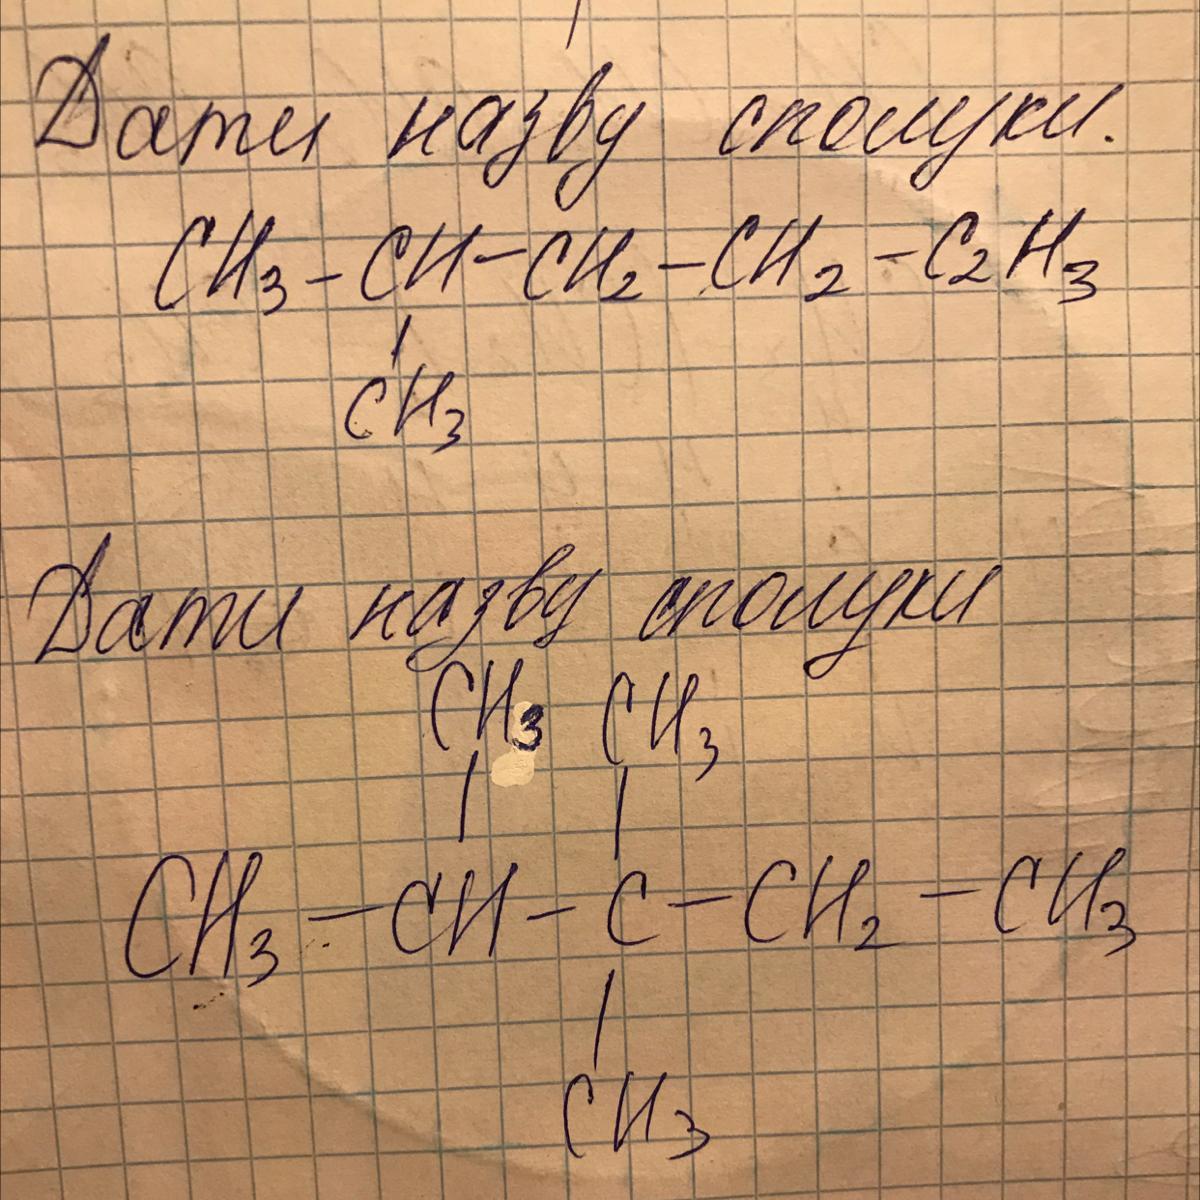 Дати назву сполуки.
CH3-CH-CH2-CH2-C2H3
CH3
Дати назву сполуки
CH3 CH3
CH3-CH-C-CH2-CH3
CH3